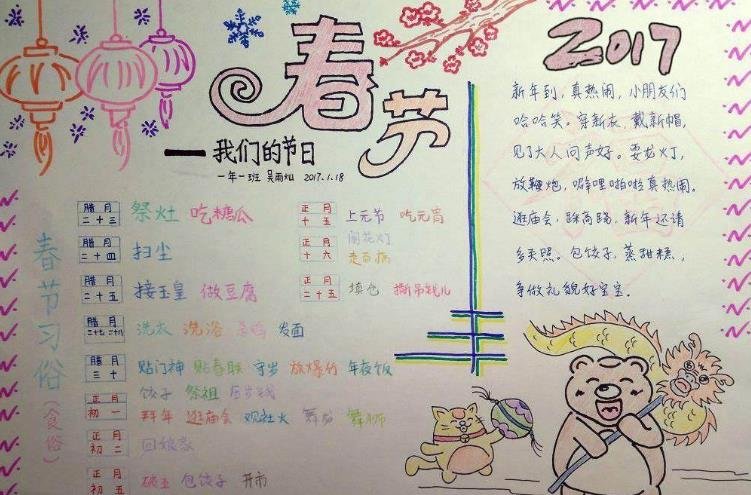 春节
——我们的节日
一年一班 吴雨灿 2017.1.18
春节习俗（食俗）
腊月二十三 祭灶 吃糖瓜
腊月二十四 扫尘
腊月二十五 接玉皇 做豆腐
腊月二十七 二十八 洗衣 洗浴 杀鸡 发面
腊月三十 贴门神 贴春联 守岁 放爆竹 年夜饭
饺子 祭祖 压岁钱
正月初一 拜年 逛庙会 观社火 舞龙 舞狮
正月初二 回娘家
正月初五 破五 包饺子 开市
正月十五 上元节 吃元宵
闹花灯
正月十六 走百病
正月二十五 填仓
2017
新年到，真热闹，小朋友们
哈哈笑。穿新衣，戴新帽，
见了大人问声好。耍龙灯，
放鞭炮，噼哩啪啦真热闹。
逛庙会，踩高跷，新年还请
多关照。包饺子，蒸甜糕，
争做礼貌好宝宝。